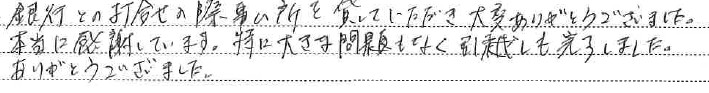 銀行との打合せの際事ム所を貸していただき大変ありがとうございました。
本当に感謝しています。特に大きな問題もなく引越しも完了しました。
ありがとうございました。